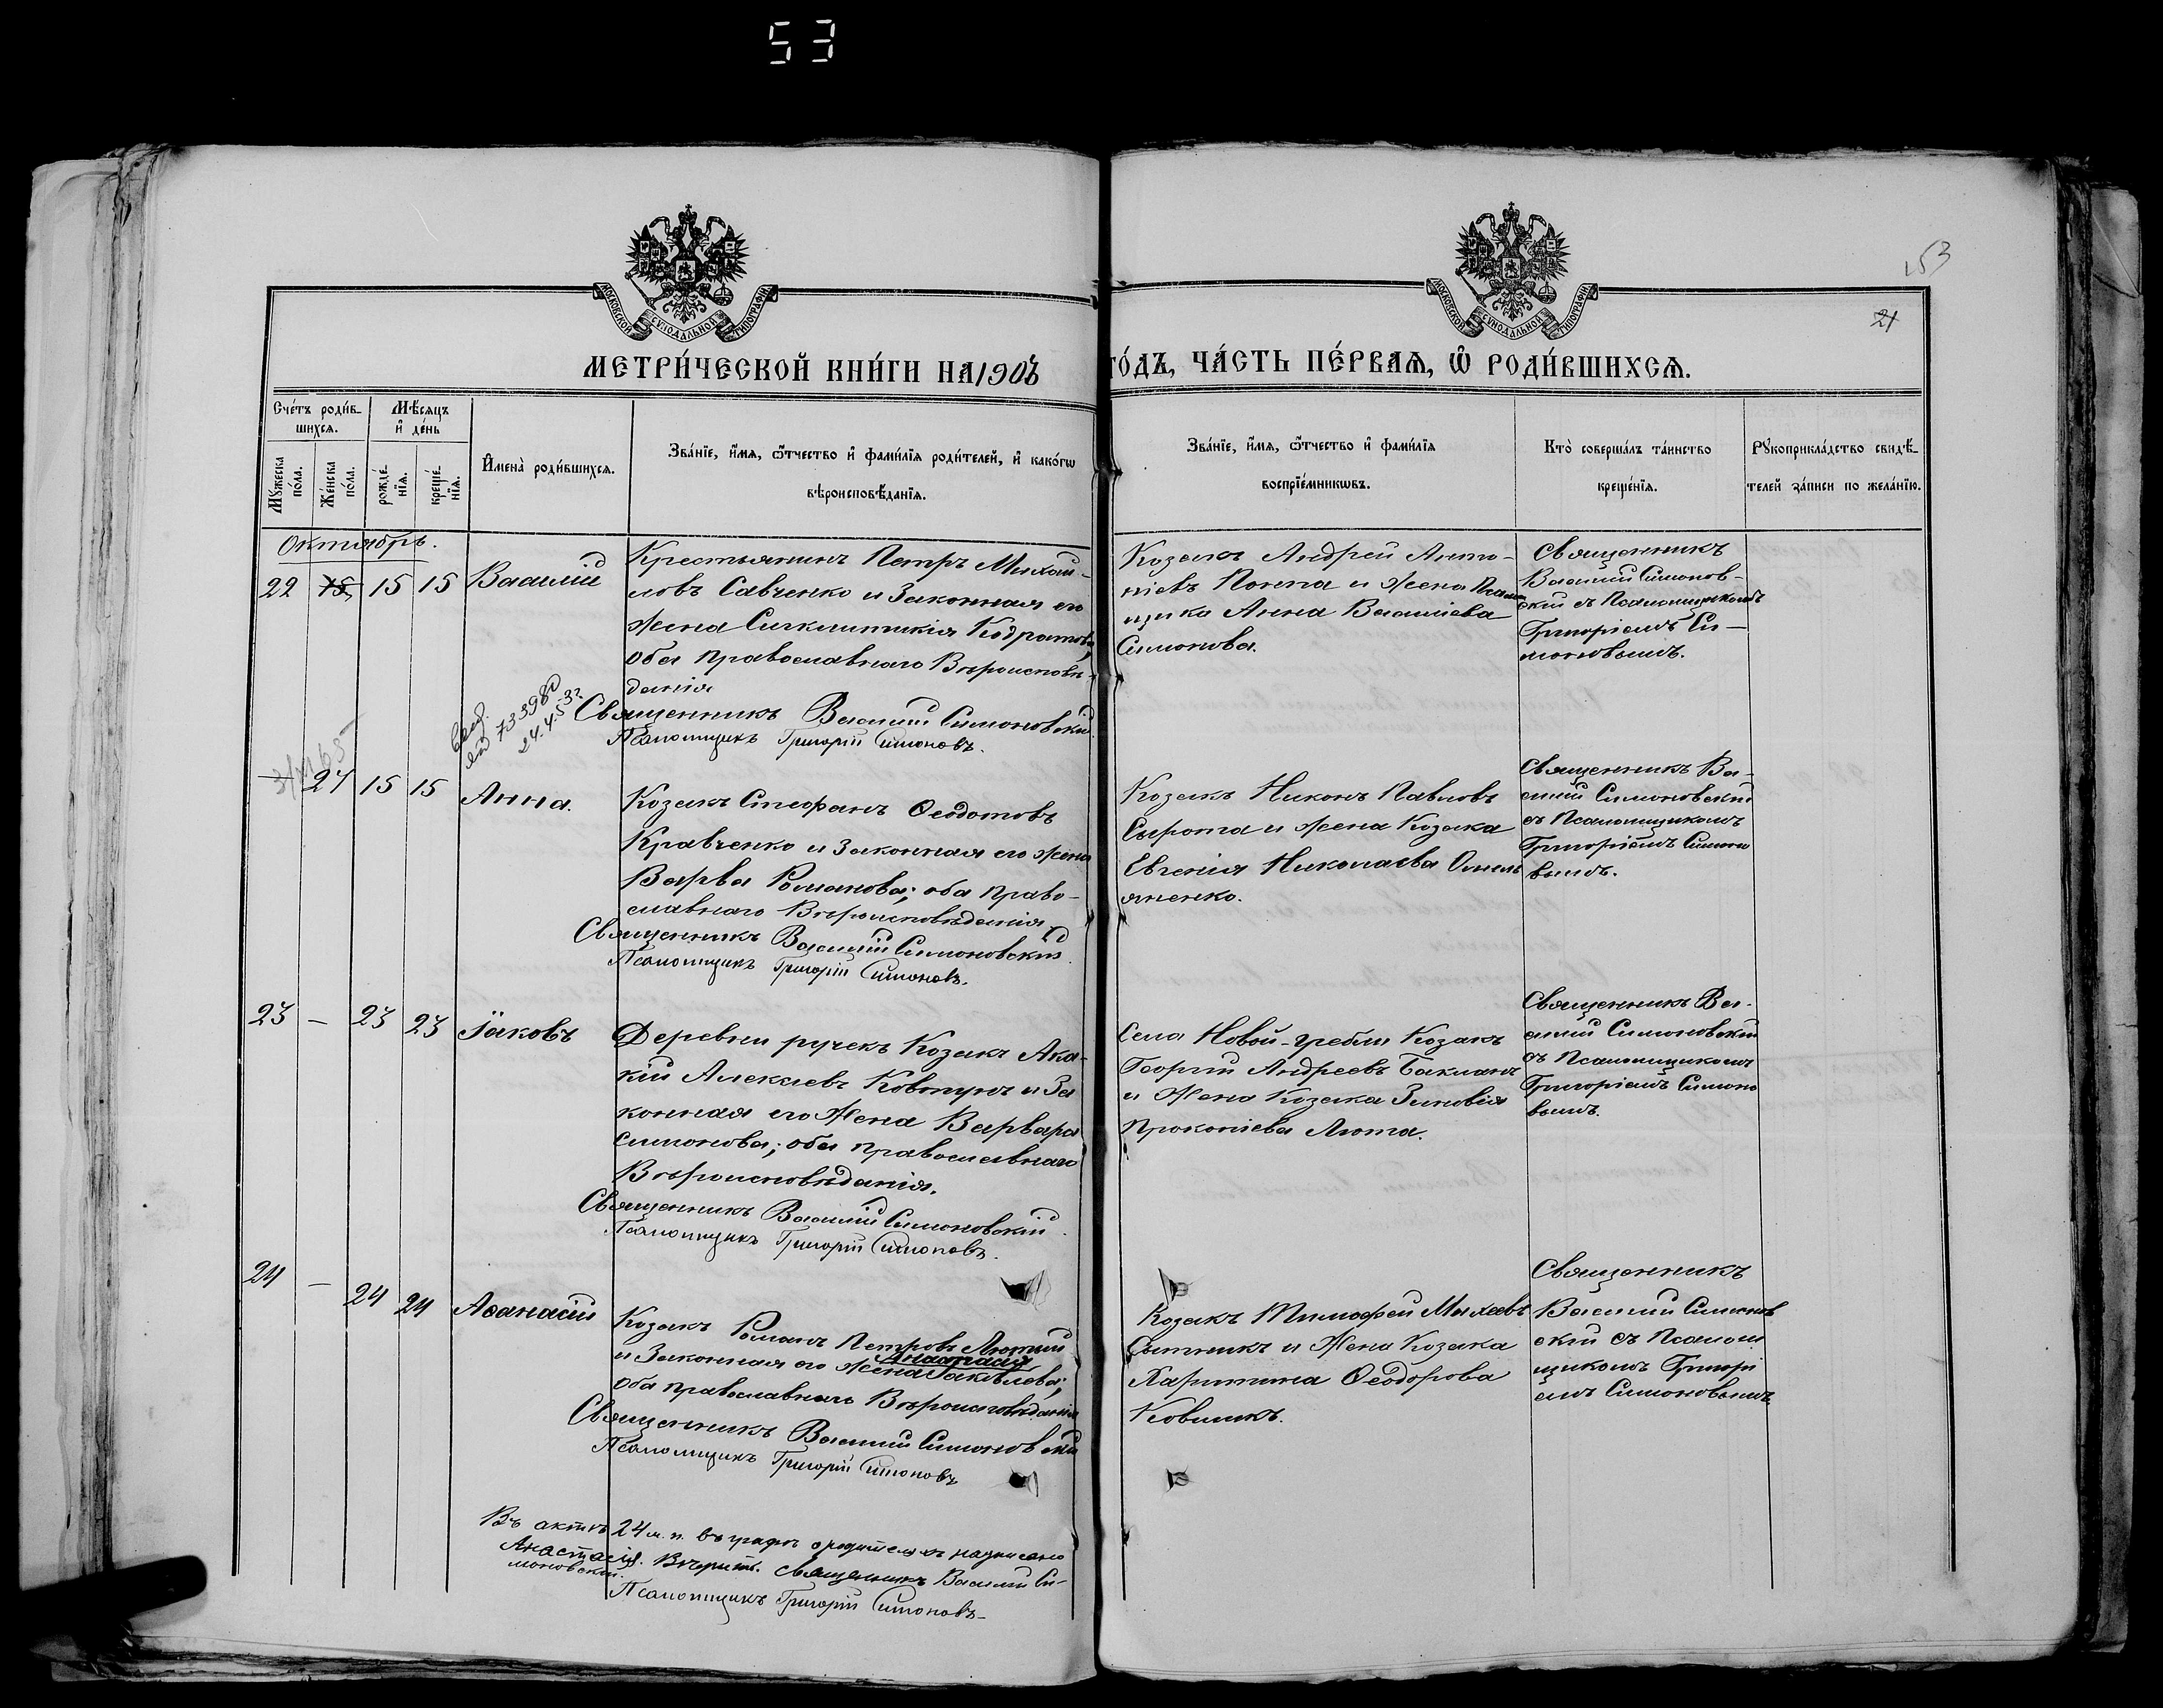 53
МОСКОВСКОЙ СѴНОДАЛЬНОЙ ТИПОГРАФІИ
МОСКОВСКОЙ СѴНОДАЛЬНОЙ ТИПОГРАФІИ
53
21
МЕТРИ́ЧЕСКОЙ КНИ́ГИ НА 190
ГО́ДЪ, ЧА́СТЬ ПЕ́РВАѦ, Ѡ҆ РОДИ́ВШИХСѦ.
Сче́тъ роди́в-
шихсѧ.
Мꙋ́жеска по́ла.
Же́нска по́ла.
Мѣ́сѧцъ и҆ де́нь
рожде́нїѧ.
креще́нїѧ.
И҆мена̀ роди́вшихсѧ.
Зва́нїе, и҆́мѧ, ѻ҆́тчество и҆ фами́лїѧ роди́телей, и҆ како́гѡ
вѣроисповѣ́данїѧ.
Зва́нїе, и҆́мѧ, ѻ҆́тчество и҆ фами́лїѧ
воспрїе́мникѡвъ.
Кто̀ соверша́лъ та́инство
креще́нїѧ.
Рꙋкоприкла́дство свидѣ́-
телей за́писи по жела́нїю.
Октябрь.
22 15 15 Василій
Крестьянинъ Петръ Михай-
ловъ Савченко и Законная его
жена Сигклитикія Кодратова,
оба Православнаго Вѣроисповѣ-
данія
Священникъ Василій Симоновскій
Псаломщикъ Григорій Симоновъ.
Козакъ Андрей Анто-
ніевъ Понпа и жена Псалом
щика Анна Василіева
Симонова.
Священникъ
Василій Симонов-
скій съ Псаломщикомъ
Григоріемъ Си-
моновымъ.
24.4.53
21 15 15 Анна.
Козакъ Стефанъ Ѳеодотовъ
Кравченко и Законная его жена
Варвара Романова; оба Право-
славнаго Вѣроисповѣданія
Священникъ Василій Симоновскій
Псаломщикъ Григорій Симоновъ.
Козакъ Никонъ Павловъ
Сырота и жена Козака
Евгенія Николаева Омель
яненко.
Священникъ Ва-
силій Симоновскій
съ Псаломщикомъ
Григоріемъ Симоно
вымъ.
23 — 23 23 Іаковъ
Деревни ручекъ Козакъ Ака-
кій Алексіевъ Ковтунъ и За
конная его жена Варвара
Симонова; оба православнаго
Вѣроисповѣданія.
Священникъ Василій Симоновскій
Псаломщикъ Григорій Симоновъ.
Села Новой-гребли Козакъ
Георгій Андреевъ Бакланъ
и жена Козака Зиновія
Прокопіева Люта.
Священникъ Ва-
силій Симоновскій
съ Псаломщикомъ
Григоріемъ Симоно
вымъ.
24 — 24 24 Аѳанасій
Козакъ Романъ Петровъ Лютый
Анастасія
и Законная его жена Іаковлева;
оба православнаго Вѣроисповѣданія
Священникъ Василій Симоновскій
Псаломщикъ Григорій Симоновъ
Козакъ Тимофей Михеевъ
Сытникъ и жена Козака
Харитина Ѳеодорова
Ковшикъ.
Священникъ
Василій Симонов
скій съ Псалом
щикомъ Григорі
емъ Симоновымъ.
Въ актѣ 24 м. п. въ графѣ о родителяхъ надписано
Анастасія. Вѣрить. Священникъ Василій Си-
моновскій.
Псаломщикъ Григорій Симоновъ